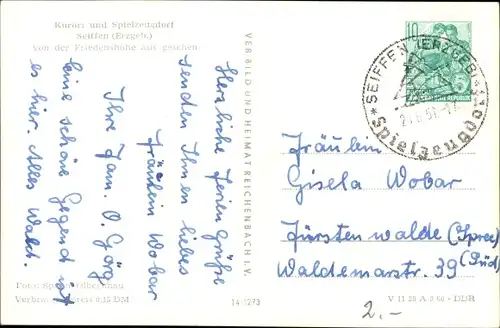 Kurort und Spielzeugdorf
Seiffen (Erzgeb.)
von der Friedenshöhe aus gesehen.
Herzliche Ferien Grüße
senden Ihnen liebes
Fräulein Wobar
Ihre Fam. O. Görg
Eine schöne Gegend ist
es hier. Alles Wald.
Foto:
Verbr. 0,15 DM
VERBILD UND HEIMAT REICHENBACH I. V.
14 1273
10
SEIFFEN (ERZGEB)
Spielzeugdorf
Fräulein
Gisela Wobar
Fürstenwalde (Spree)
Waldemarstr. 39 (Süd)
2.-
V 11 28 A 9 60 - DDR